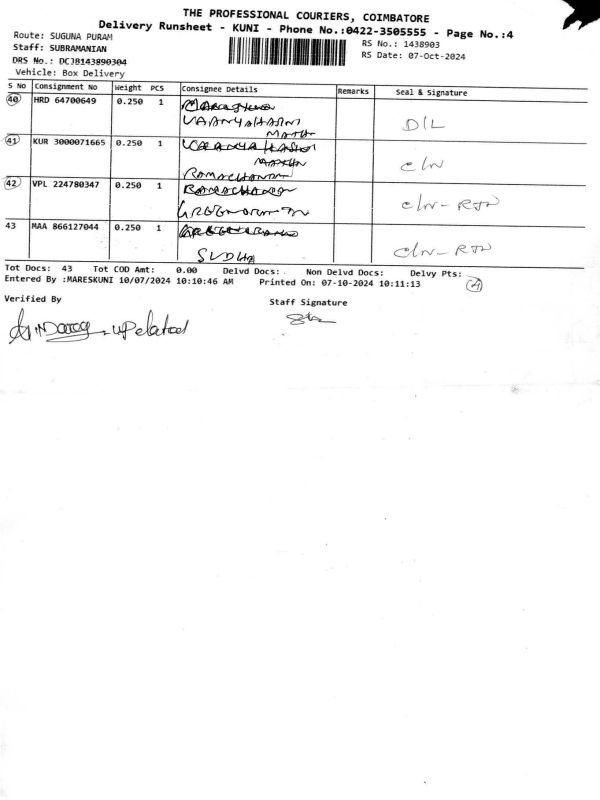 THE PROFESSIONAL COURIERS, COIMBATORE
Delivery Runsheet - KUNI - Phone No.:0422-3505555 - Page No.:4
Route: SUGUNA PURAM
RS No.: 1438903
Staff: SUBRAMANIAN
RS Date: 07-Oct-2024
DRS No.: DCJB143890304
Vehicle: Box Delivery
S No Consignment No Weight PCS Consignee Details Remarks Seal & Signature
40 HRD 64700649 0.250 1
D/L
41 KUR 3000071665 0.250 1
CLN
RAMACHANDRA
42 VPL 224780347 0.250 1
CLN-RJN
43 MAA 866127044 0.250 1
SUDHA
CLN-RJN
Tot Docs: 43 Tot COD Amt: 0.00 Delvd Docs: Non Delvd Docs: Delvy Pts:
Entered By :MARESKUNI 10/07/2024 10:10:46 AM Printed On: 07-10-2024 10:11:13
Verified By Staff Signature